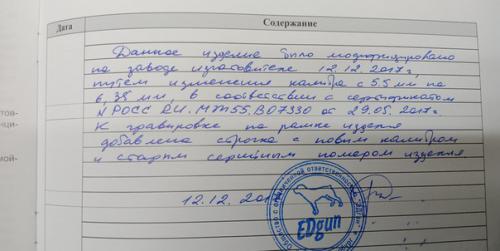 Дата
Содержание
Данное изделие было модифицировано
на заводе изготовителе 12.12.2017г,
путем изменения калибра с 5.5 мм на
6,35 мм, в соответствии с сертификатом
N РОСС RU. МЖ55.В07330 от 29.05.2017г.
К гравировке на рамке изделия
добавлена строчка с новым калибром
и старым серийным номером изделия.
12.12.20
EDgun
с ограниченной ответственностью